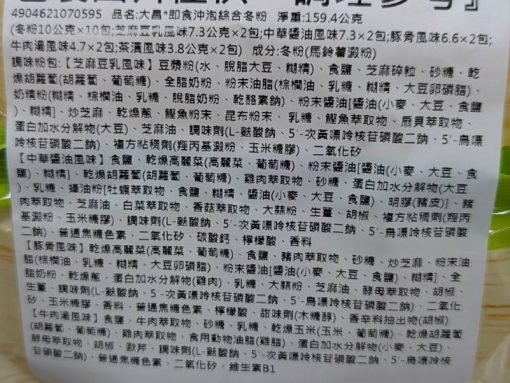 4904621070595 品名:大昌*即食沖泡綜合冬粉 淨重:159.4公克
(冬粉10公克×10包;芝麻豆乳風味7.3公克×2包;中華醬油風味7.3×2包;豚骨風味6.6×2包;
牛肉湯風味4.7×2包;茶漬風味3.8公克×2包) 成分:冬粉(馬鈴薯澱粉)
調味粉包:【芝麻豆乳風味】豆漿粉(水、脫脂大豆、糊精)、食鹽、芝麻碎粒、砂糖、乾
燥胡蘿蔔(胡蘿蔔、葡萄糖)、全脂奶粉、粉末油脂(棕櫚油、乳糖、糊精、大豆卵磷脂)、
奶精粉(糊精、棕櫚油、乳糖、脫脂奶粉、乾酪素鈉)、粉末醬油[醬油(小麥、大豆、食鹽
)、糊精]、炒芝麻、乾燥蔥、鰹魚粉末、昆布粉末、乳糖、鰹魚萃取物、扇貝萃取物、
蛋白加水分解物(大豆)、芝麻油、調味劑(L-麩酸鈉、5'-次黃嘌呤核苷磷酸二鈉、5'-鳥嘌
呤核苷磷酸二鈉)、複方粘稠劑(羥丙基澱粉、玉米糖膠)、二氧化矽
【中華醬油風味】食鹽、乾燥高麗菜(高麗菜、葡萄糖)、粉末醬油[醬油(小麥、大豆、食
鹽)、糊精]、乾燥胡蘿蔔(胡蘿蔔、葡萄糖)、雞肉萃取物、砂糖、蛋白加水分解物(大豆
)、乳糖、蠔油粉[牡蠣萃取物、食鹽、糊精、醬油(小麥、大豆、食鹽)、明膠(豬皮)]、豬
肉萃取物、芝麻油、白菜萃取物、香菇萃取物、大蒜粉、生薑、胡椒、複方粘稠劑(羥丙
基澱粉、玉米糖膠)、調味劑(L-麩酸鈉、5'-次黃嘌呤核苷磷酸二鈉、5'-鳥嘌呤核苷磷酸
二鈉)、普通焦糖色素、二氧化矽、碳酸鈣、檸檬酸、香料
【豚骨風味】乾燥高麗菜(高麗菜、葡萄糖)、食鹽、豬肉萃取物、砂糖、炒芝麻、粉末油
脂(棕櫚油、乳糖、糊精、大豆卵磷脂)、粉末醬油[醬油(小麥、大豆、食鹽)、糊精]、全
脂奶粉、乾燥蔥、蛋白加水分解物(雞肉)、乳糖、大蒜粉、芝麻油、酵母萃取物、胡椒、
生薑、調味劑(L-麩酸鈉、5'-次黃嘌呤核苷磷酸二鈉、5'-鳥嘌呤核苷磷酸二鈉)、二氧化
矽、玉米糖膠、香料、普通焦糖色素、檸檬酸、甜味劑(木糖醇)、香辛料抽出物(胡椒)
【牛肉湯風味】食鹽、牛肉萃取物、砂糖、乳糖、乾燥玉米(玉米、葡萄糖)、乾燥胡蘿蔔
(胡蘿蔔、葡萄糖)、雞肉萃取物、食用動物油脂(雞脂)、蛋白加水分解物(大豆)、乾燥蔥、
酵母萃取物、胡椒、調味劑(L-麩酸鈉、5'-次黃嘌呤核苷磷酸二鈉、5'-鳥嘌呤核
苷磷酸二鈉)、普通焦糖色素、二氧化矽、維生素B1